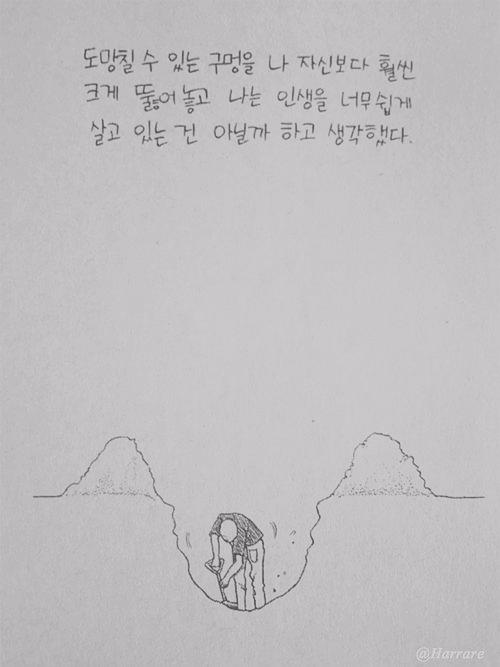 도망칠 수 있는 구멍을 나 자신보다 훨씬
크게 뚫어 놓고 나는 인생을 너무 쉽게
살고 있는 건 아닐까 하고 생각했다.
@Harrare